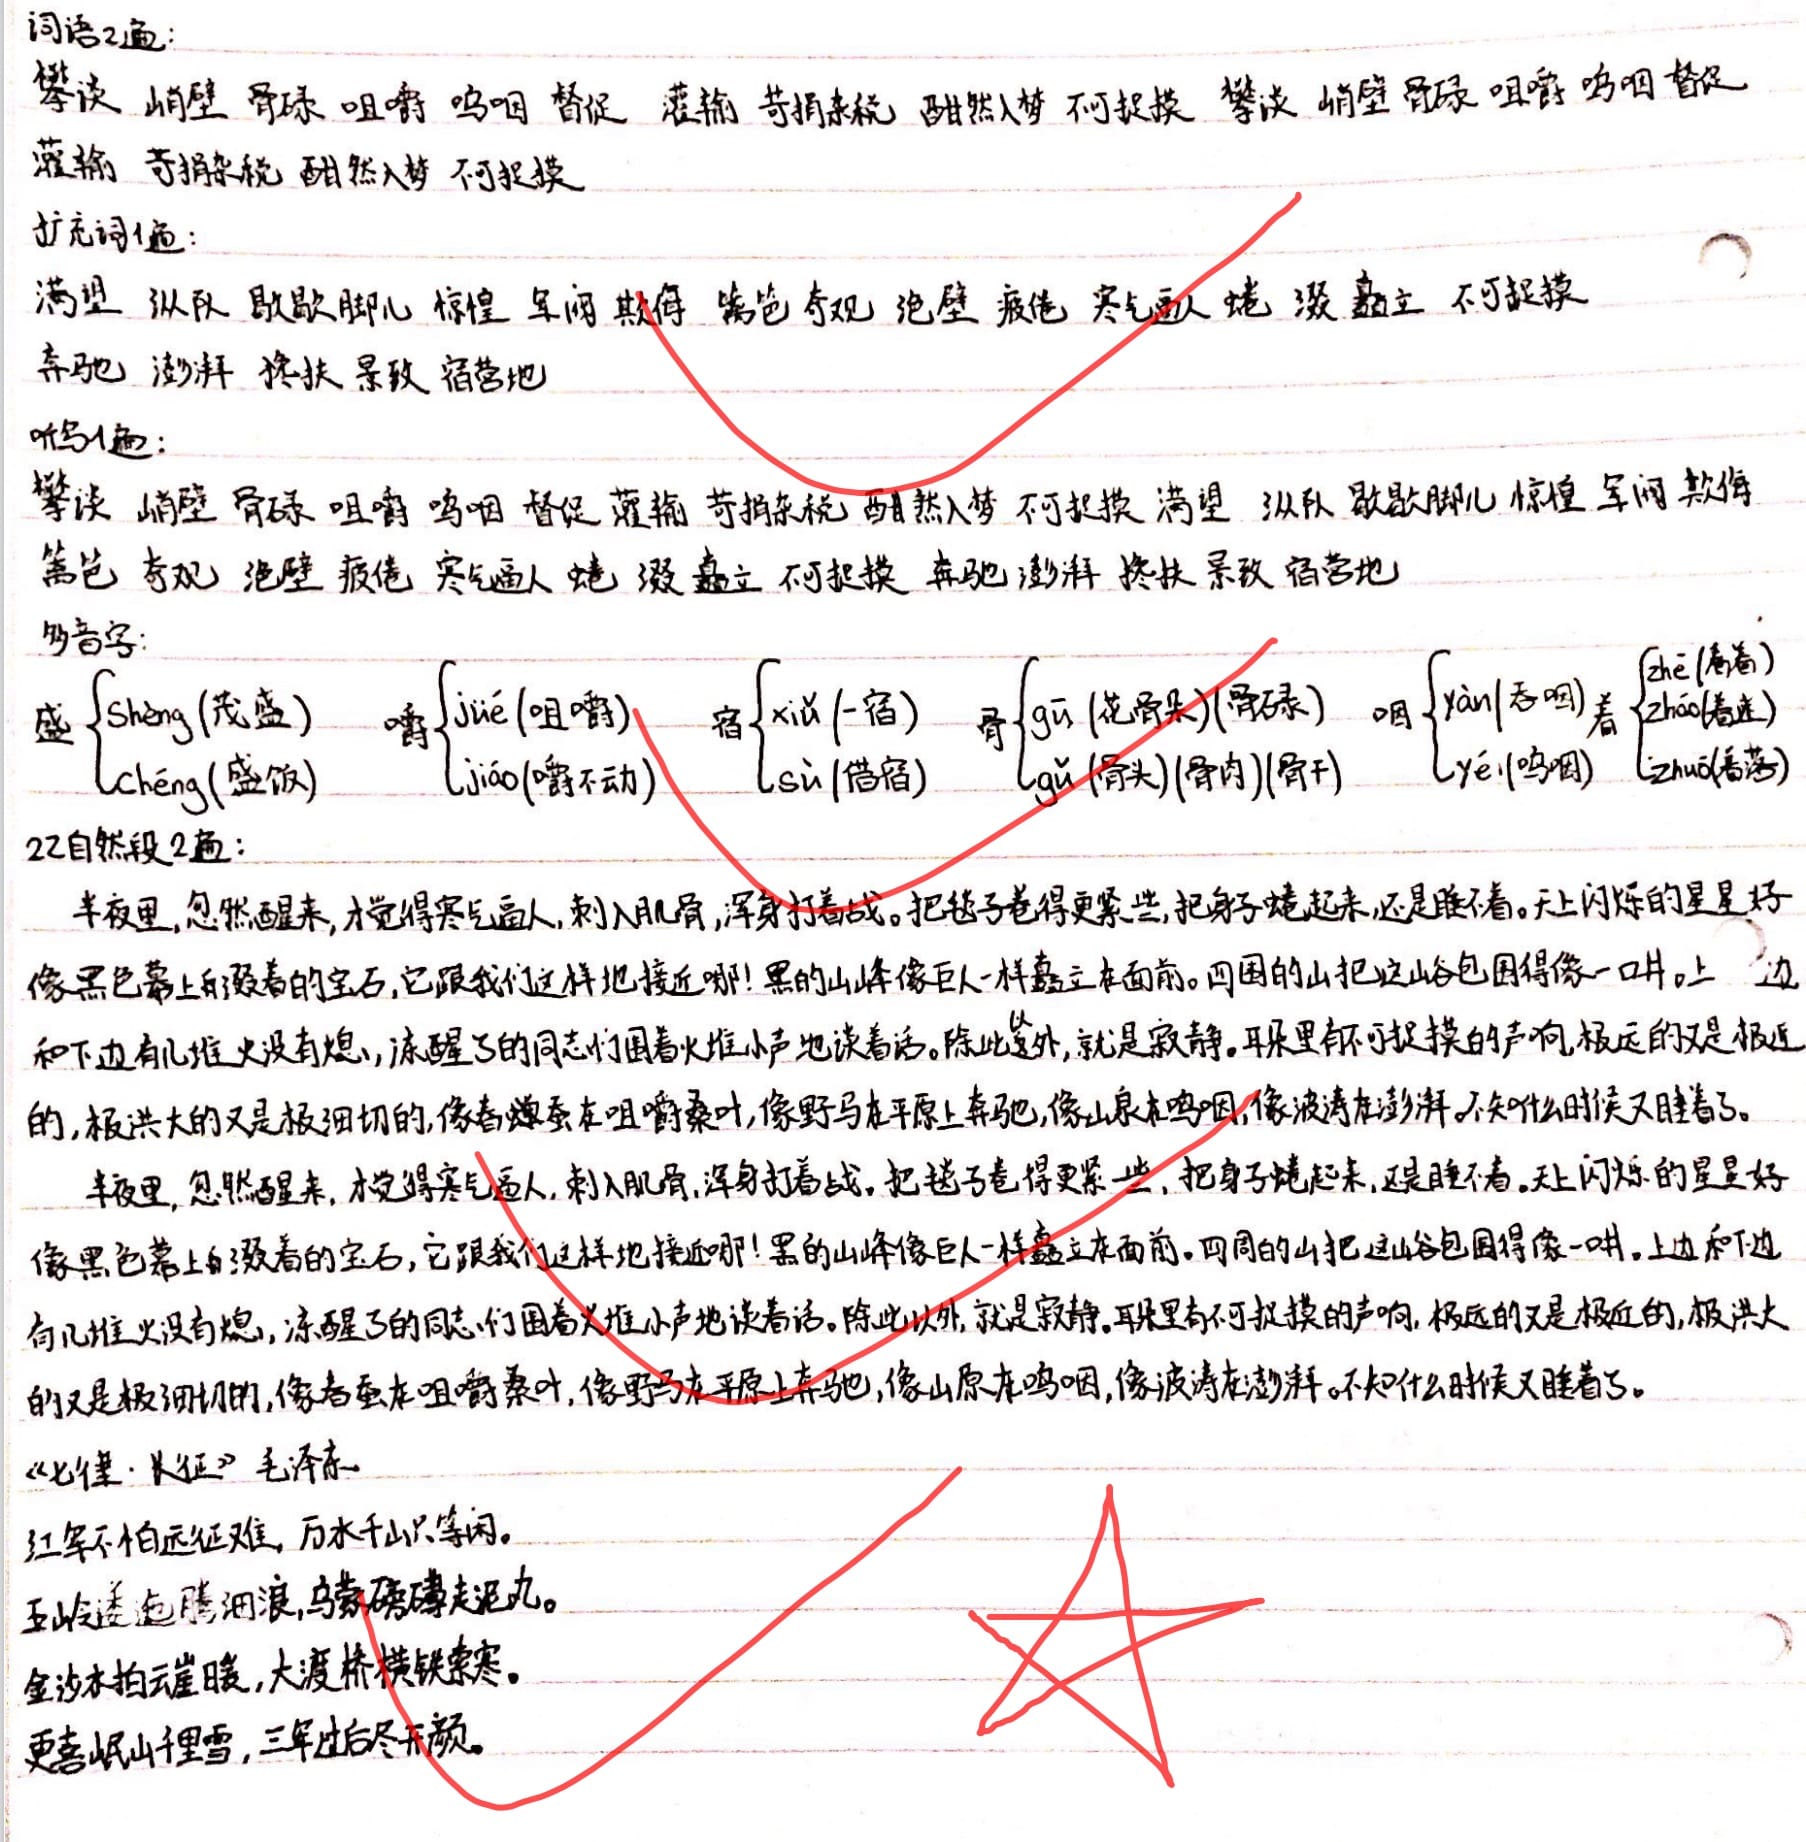 词语2遍:
攀谈 峭壁 骨碌 咀嚼 呜咽 督促 灌输 苛捐杂税 酣然入梦 不可捉摸 攀谈 峭壁 骨碌 咀嚼 呜咽 督促
灌输 苛捐杂税 酣然入梦 不可捉摸
扩充词1遍:
满望 纵队 歇歇脚儿 惊惶 军阀 欺侮 篱笆 奇观 绝壁 疲倦 寒气逼人 蜷 缀 矗立 不可捉摸
奔驰 澎湃 搀扶 景致 宿营地
听写1遍:
攀谈 峭壁 骨碌 咀嚼 呜咽 督促 灌输 苛捐杂税 酣然入梦 不可捉摸 满望 纵队 歇歇脚儿 惊惶 军阀 欺侮
篱笆 奇观 绝壁 疲倦 寒气逼人 蜷 缀 矗立 不可捉摸 奔驰 澎湃 搀扶 景致 宿营地
多音字:
盛 shèng(茂盛) 嚼 jüé(咀嚼) 宿 xiǔ(一宿) 骨 gū(花骨朵)(骨碌) 咽 yàn(吞咽) 着 zhē(看着)
zháo(着迷)
chéng(盛饭) jiáo(嚼不动) sù(借宿) gǔ(骨头)(骨肉)(骨干) yé(呜咽) zhuó(着落)
22自然段2遍:
半夜里,忽然醒来,才觉得寒气逼人,刺入肌骨,浑身打着战。把毯子卷得更紧些,把身子蜷起来,还是睡不着。天上闪烁的星星好
像黑色幕上缀着的宝石,它跟我们这样地接近哪!黑的山峰像巨人一样矗立在面前。四围的山把这山谷包围得像一口井。上 边
和下边有几堆火没有熄,冻醒了的同志们围着火堆小声地谈着话。除此以外,就是寂静。耳朵里有不可捉摸的声响,极远的又是极近
的,极洪大的又是极细切的,像春蚕在咀嚼桑叶,像野马在平原上奔驰,像山泉在呜咽,像波涛在澎湃。不知什么时候又睡着了。
半夜里,忽然醒来,才觉得寒气逼人,刺入肌骨,浑身打着战。把毯子卷得更紧一些,把身子蜷起来,还是睡不着。天上闪烁的星星好
像黑色幕上缀着的宝石,它跟我们这样地接近哪!黑的山峰像巨人一样矗立在面前。四周的山把这山谷包围得像一口井。上边和下边
有几堆火没有熄,冻醒了的同志们围着火堆小声地谈着话。除此以外,就是寂静。耳朵里有不可捉摸的声响,极远的又是极近的,极洪大
的又是极细切的,像春蚕在咀嚼桑叶,像野马在平原上奔驰,像山原在呜咽,像波涛在澎湃。不知什么时候又睡着了。
《七律·长征》 毛泽东
红军不怕远征难,万水千山只等闲。
五岭逶迤腾细浪,乌蒙磅礴走泥丸。
金沙水拍云崖暖,大渡桥横铁索寒。
更喜岷山千里雪,三军过后尽开颜。